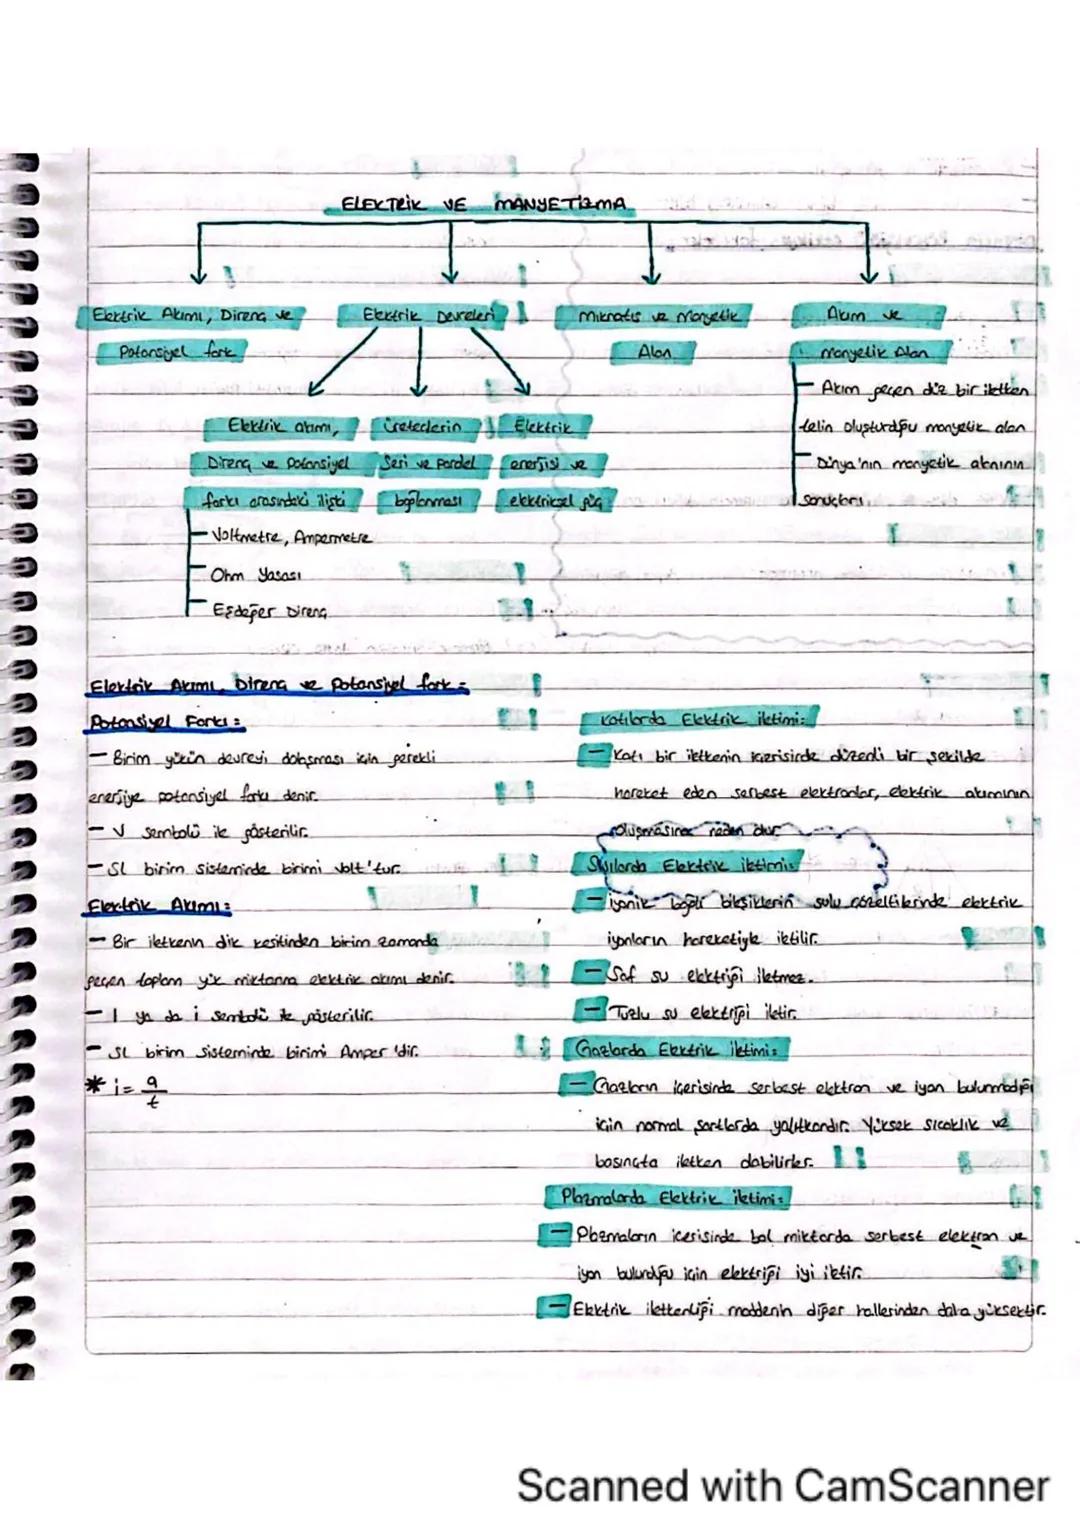 ELEKTRİK VE MANYETİZMA
Elektrik Akımı, Direnç ve
Potansiyel fark
Elektrik Devreleri
Mıknatıs ve Manyetik
Alan
Akım ve
manyetik Alan
Akım geçen düz bir iletken
telin oluşturduğu manyetik alan
Dünya'nın manyetik alanının
sonuçları
Elektrik akımı,
Direnç ve Potansiyel
farkı arasındaki ilişki
üreteçlerin
Seri ve Paralel
bağlanması
Elektrik
enerjisi ve
elektriksel güç
Voltmetre, Ampermetre
Ohm Yasası
Eşdeğer Direnç
Elektrik Akımı, Direnç ve Potansiyel fark:
Potansiyel Farkı:
- Birim yükün devreyi dolaşması için gerekli
enerjiye potansiyel farkı denir.
- V sembolü ile gösterilir.
- SI birim sisteminde birimi Volt'tur.
Elektrik Akımı:
- Bir iletkenin dik kesitinden birim zamanda
geçen toplam yük miktarına elektrik akımı denir.
- I ya da i sembolü ile gösterilir.
- SI birim sisteminde birimi Amper'dir.
* i = q/t
Katılarda Elektrik iletimi:
- Katı bir iletkenin içerisinde düzenli bir şekilde
hareket eden serbest elektronlar, elektrik akımının
oluşmasına neden olur
Sıvılarda Elektrik iletimi:
- iyonik bağlı bileşiklerin sulu çözeltilerinde elektrik
iyonların hareketiyle iletilir.
- Saf su elektriği iletmez.
- Tuzlu su elektriği iletir.
Gazlarda Elektrik iletimi:
- Gazların içerisinde serbest elektron ve iyon bulunmadığı
için normal şartlarda yalıtkandır. Yüksek sıcaklık ve
basınçta iletken olabilirler.
Plazmalarda Elektrik iletimi:
- Plazmaların içerisinde bol miktarda serbest elektron ve
iyon bulunduğu için elektriği iyi iletir.
- Elektrik iletkenliği maddenin diğer hallerinden daha yüksektir.
Scanned with CamScanner